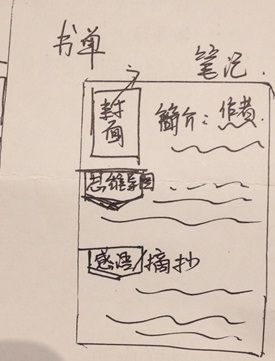 书单 笔记
封面
简介：作者
思维导图
感悟/摘抄